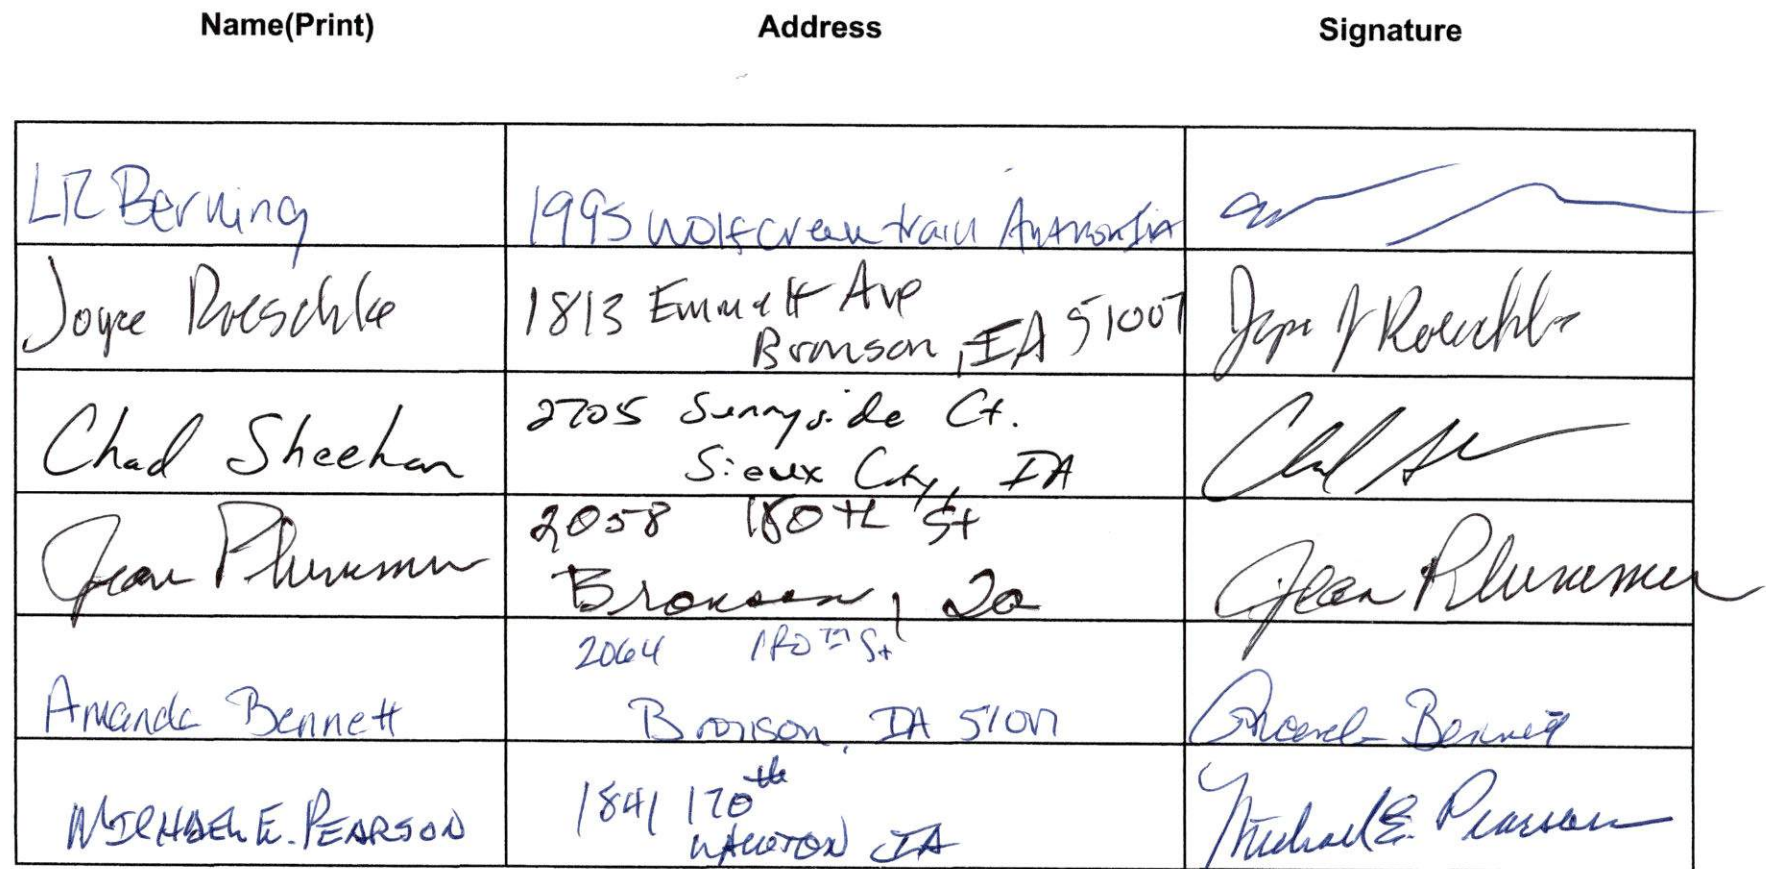 Name(Print) Address Signature
Liz Berning 1995 Wolfcreek
Joyce Roeschke 1813 Emmett Ave
Bronson, IA 51007 Joyce J Roeschke
Chad Sheehan 2705 Sunnyside Ct.
Sioux City, IA
Jean Plummer 2058 180th St
Bronson, Ia Jean Plummer
2064 180TH St
Amanda Bennett Bronson, IA 51007 Amanda Bennett
MICHAEL E. PEARSON 1841 170th
LAWTON IA Michael E. Pearson